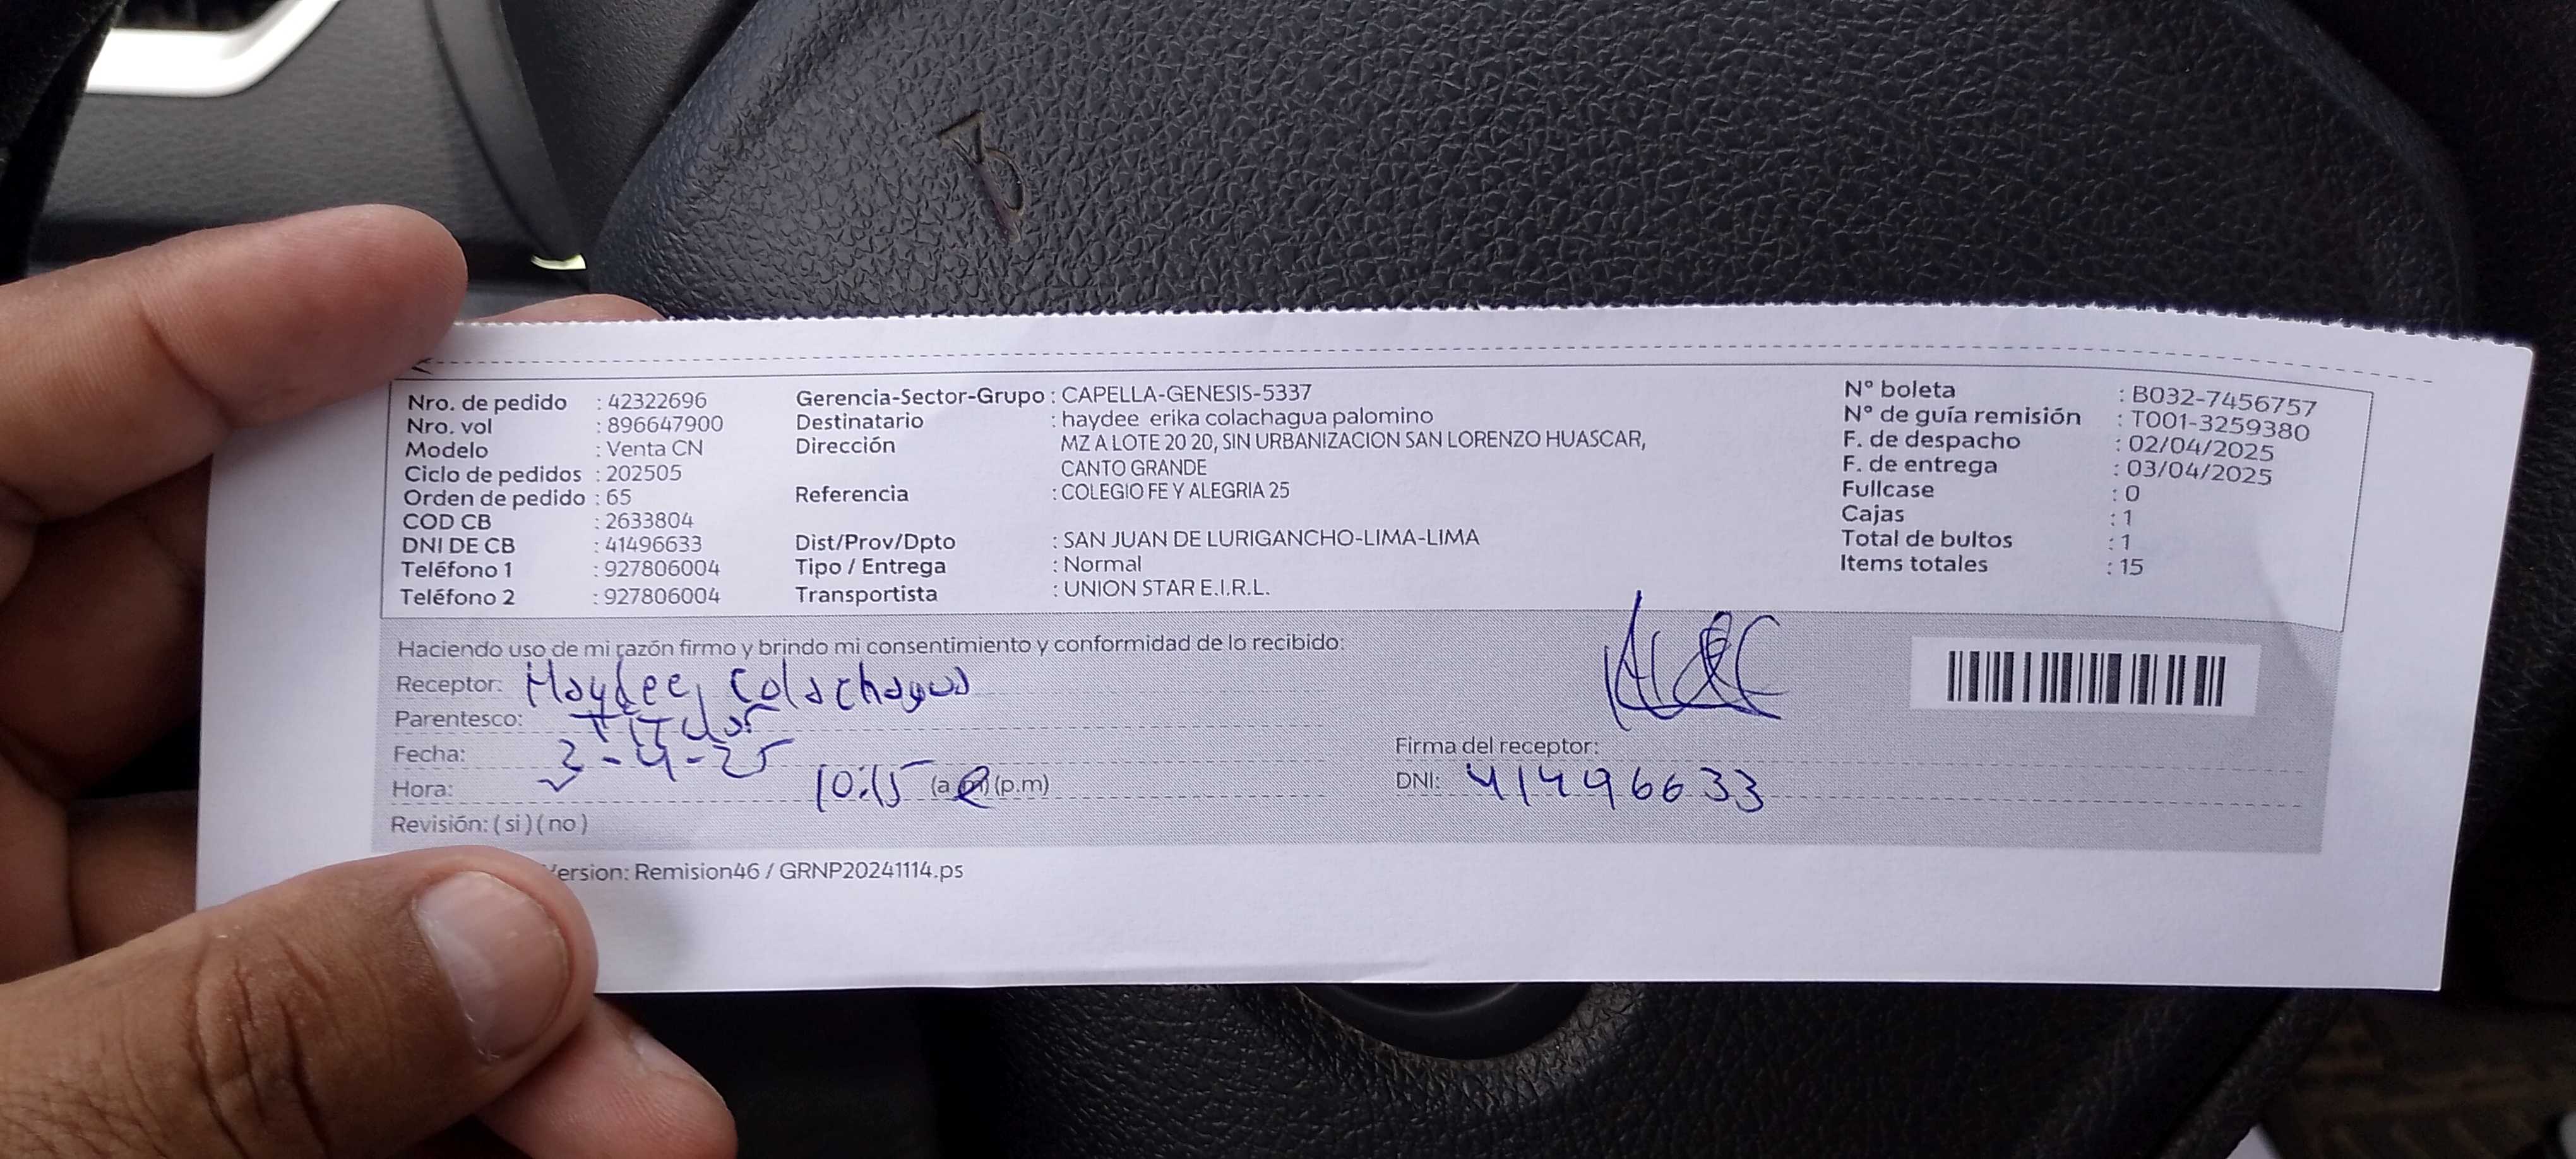 Nro. de pedido : 42322696
Nro. vol : 896647900
Modelo : Venta CN
Ciclo de pedidos : 202505
Orden de pedido : 65
COD CB : 2633804
DNI DE CB : 41496633
Teléfono 1 : 927806004
Teléfono 2 : 927806004
Gerencia-Sector-Grupo : CAPELLA-GENESIS-5337
Destinatario : haydee erika colachagua palomino
Dirección MZ A LOTE 20 20, SIN URBANIZACION SAN LORENZO HUASCAR,
CANTO GRANDE
Referencia : COLEGIO FE Y ALEGRIA 25
Dist/Prov/Dpto : SAN JUAN DE LURIGANCHO-LIMA-LIMA
Tipo / Entrega : Normal
Transportista : UNION STAR E.I.R.L.
N° boleta : B032-7456757
N° de guía remisión : T001-3259380
F. de despacho : 02/04/2025
F. de entrega : 03/04/2025
Fullcase : 0
Cajas : 1
Total de bultos : 1
Items totales : 15
Haciendo uso de mi razón firmo y brindo mi consentimiento y conformidad de lo recibido:
Receptor: Haydee, Colachagua
Parentesco: TITular
Fecha: 3-4-25
Hora: 10:15 (a.m) (p.m)
Revisión: ( si ) ( no )
Firma del receptor:
DNI: 41496633
Version: Remision46 / GRNP20241114.ps